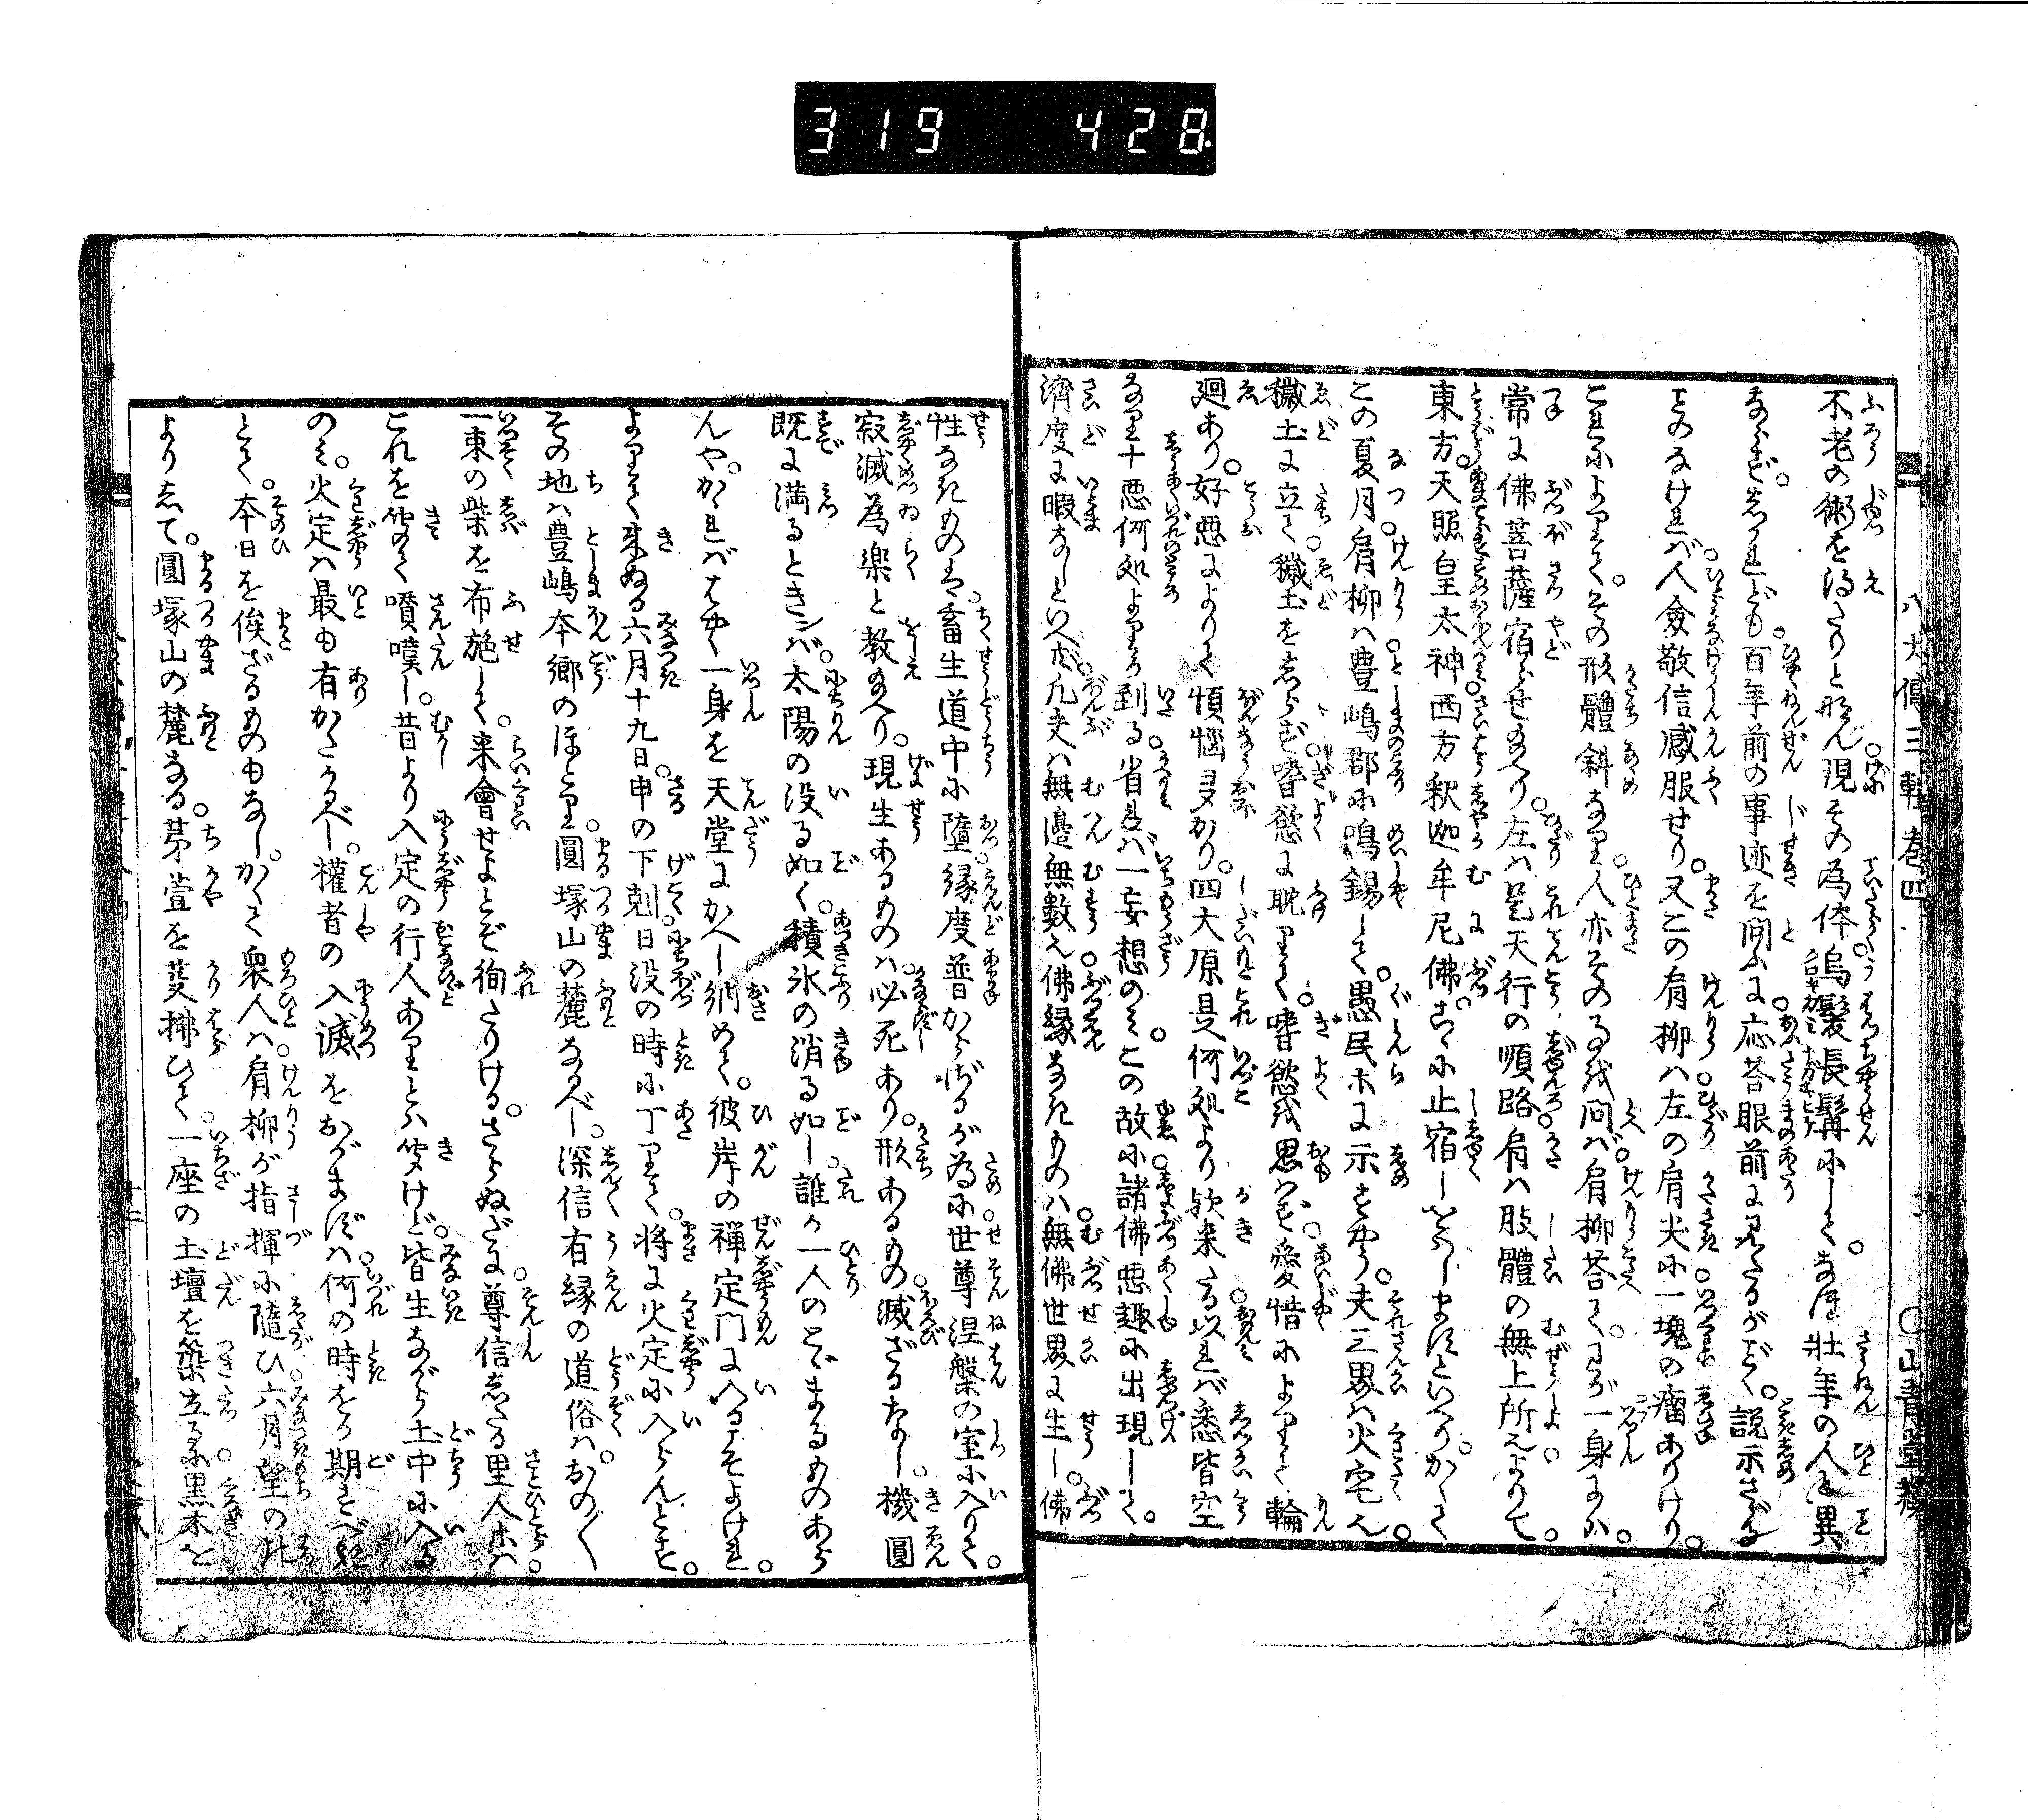 319 428
八犬傳三輯巻四 ○山青堂藏
不老の術を得たりと聞えん現その為体烏髪長髯にしてなほ壮年の人と異
ならず。しかれども百年前の事迹を問ふに応答眼前に見たるがごとく。説示さゞる
ことのなければ人僉敬信感服せり。又この肩柳は左の肩尖に一塊の瘤ありけり。
これによりて。その形體斜なり。人亦その故を問ば。肩柳答て。わが一身には。
常に佛菩薩宿らせ給へり。左は是天行の順路。肩は肢體の無上所也。よりて。
東方天照皇太神西方釈迦牟尼佛。こゝに止宿しましますといへり。かくて
この夏月。肩柳は豊嶋郡に鳴錫して。愚民等に示すやう。夫三界は火宅也。
穢土に立て穢土をしらず。嗜慾に耽りて。嗜慾を思はず。愛惜によりて輪
廻あり。好惡によりて煩悩多かり。四大原是何処より欤来たる以れば悉皆空
なり十惡何処よりか到る。省れば一妄想のみ。この故に諸佛惡趣に出現して。
濟度に暇なしといへども。凡夫は無邊無數也。佛縁なきものは。無佛世界に生じ。佛
性なきものは。畜生道中に墮。縁度普からざるが為に。世尊涅槃の室に入りて。
寂滅為楽と教給へり。現生あるものは。必死あり。形あるもの。滅ざるなし。機圓
既に満るときンば。太陽の没る如く。積氷の消る如し。誰か一人のとゞまるものあら
んや。かゝればはやく一身を天堂にかへし納めて。彼岸の禅定門に入るこそよけれ。
よりて来ぬる六月十九日。申の下剋。日没の時に丁りて。将に火定に入らんとす。
その地は豊嶋本郷のほとり。圓塚山の麓なるべし。深信有縁の道俗は。おの〳〵
一束の柴を布施して。来會せよとぞ徇たりける。さらぬだに尊信したる里人等は。
これを伝聞て嘖嘆し。昔より入定の行人ありとは聞けど。皆生ながら土中に入る
のみ。火定は最も有がたかるべし。權者の入滅をおがまずは。何の時をか期すべきと
とて。本日を俟ざるものもなし。かくて衆人は。肩柳が指揮に隨ひ。六月望の比
よりして。圓塚山の麓なる。茅萱を芟拂ひて。一座の土壇を築立るに。黒木を